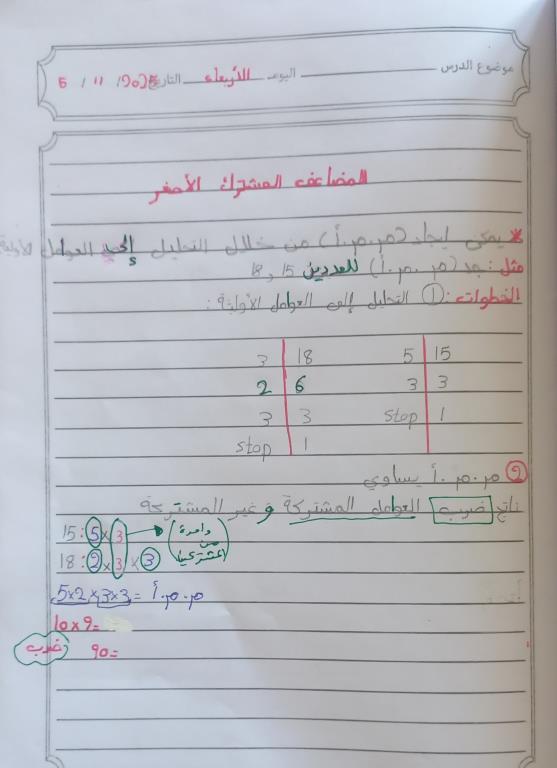 موضوع الدرس اليوم الأربعاء التاريخ 5 / 11 / 2025
المضاعف المشترك الأصغر
* يمكن إيجاد (م.م.أ) من خلال التحليل إلى العوامل الأولية
مثل: جد (م.م.أ) للعددين 15 و 18
الخطوات: ① التحليل إلى العوامل الأولية:
3 | 18 5 | 15
2 | 6 3 | 3
3 | 3 stop | 1
stop | 1
② م.م.أ يساوي
ناتج ضرب العوامل المشتركة و غير المشتركة
15 : 5 × 3 (واحدة من المشتركة)
18 : 2 × 3 × 3
5×2×3×3 = م.م.أ
10×9=
90= ضرب